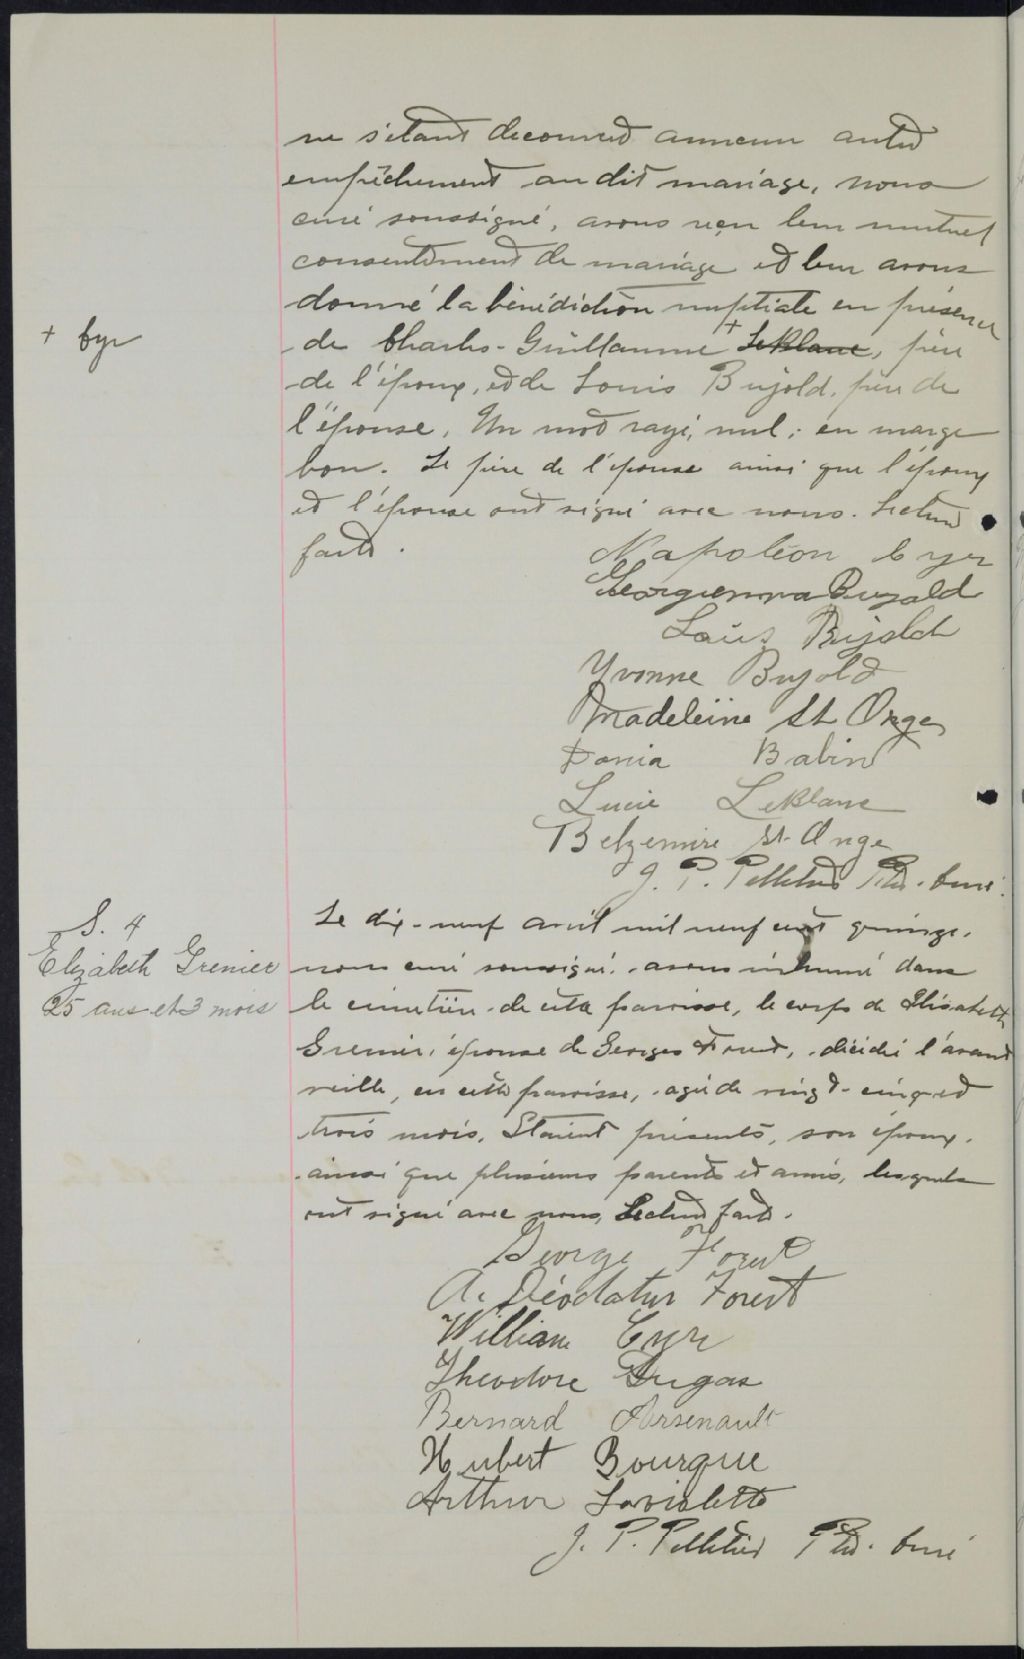 ne s'étant découvert aucun autre
empêchement au dit mariage, nous
curé soussigné, avons reçu leur mutuel
consentement de mariage et leur avons
donné la bénédiction nuptiale en présence
+ Cyr
de Charles-Guillaume + LeBlanc, père
de l'époux, et de Louis Bujold, père de
l'épouse. Un mot rayé, nul; en marge
bon. Le père de l'épouse ainsi que l'époux
et l'épouse ont signé avec nous. Lecture
faite.
Napoléon Cyr
Georgienna Bujold
Louis Bujold
Yvonne Bujold
Madeleine St Onge
Donia Babin
Lucie LeBlanc
Belzemire St-Onge
J. P. Pelletier Ptre. Curé.
S. 4
Elizabeth Grenier
25 ans et 3 mois
Le dix-neuf avril mil neuf cent quinze,
nous curé soussigné, avons inhumé dans
le cimetière de cette paroisse, le corps de Elisabeth
Grenier, épouse de Georges Forest, décédée l'avant
veille, en cette paroisse, agée de vingt-cinq et
trois mois. Etaient présents, son époux,
ainsi que plusieurs parents et amis, lesquels
ont signé avec nous, Lecture faite.
George Forest
A. Déodatus Forest
William Cyr
Theodore Dugas
Bernard Arsenault
Hubert Bourque
Arthur Laviolette
J. P. Pelletier Ptre. Curé